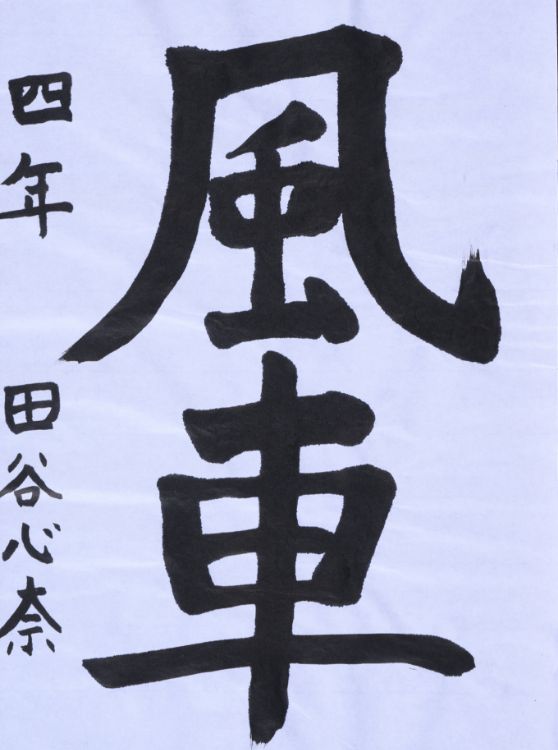 風車
四年 田谷心奈